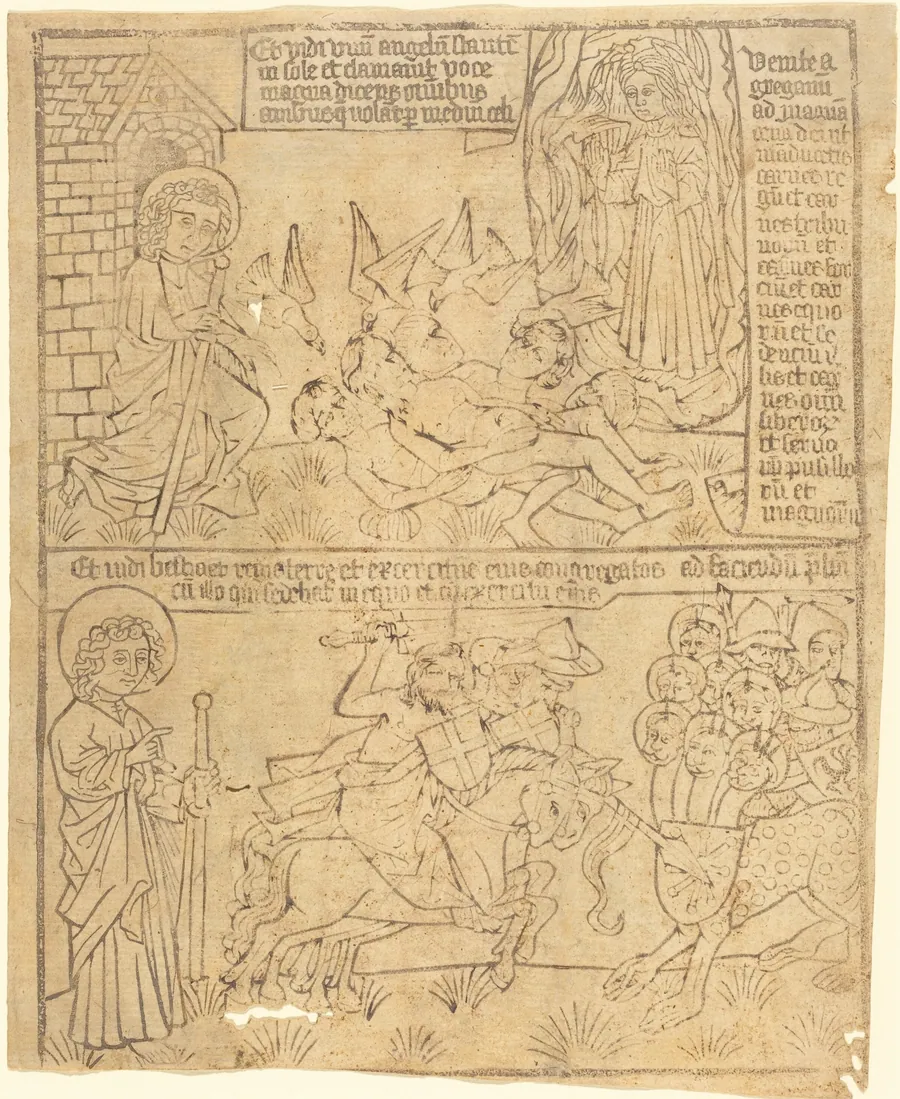 Et vidi vnū angelū stantē
in sole et clamavit voce
magna dicens omibus
avibus q volāt p mediū celi
Venite &
gregami
ad magnā
cenā dei ut
māducetis
carnes re
gū et car
nes tribu
norū et
carnes for
ciū et car
nes equo
rū et se
denciū ī
his et car
nes omī
liberoꝝ
et servo
rū pusillo
rū et
magnorū
Et vidi bestiam et reges terre et exercitus eius congregatos ad faciendū pliū
cū illo qui sedebat in equo et cū exercitu eius